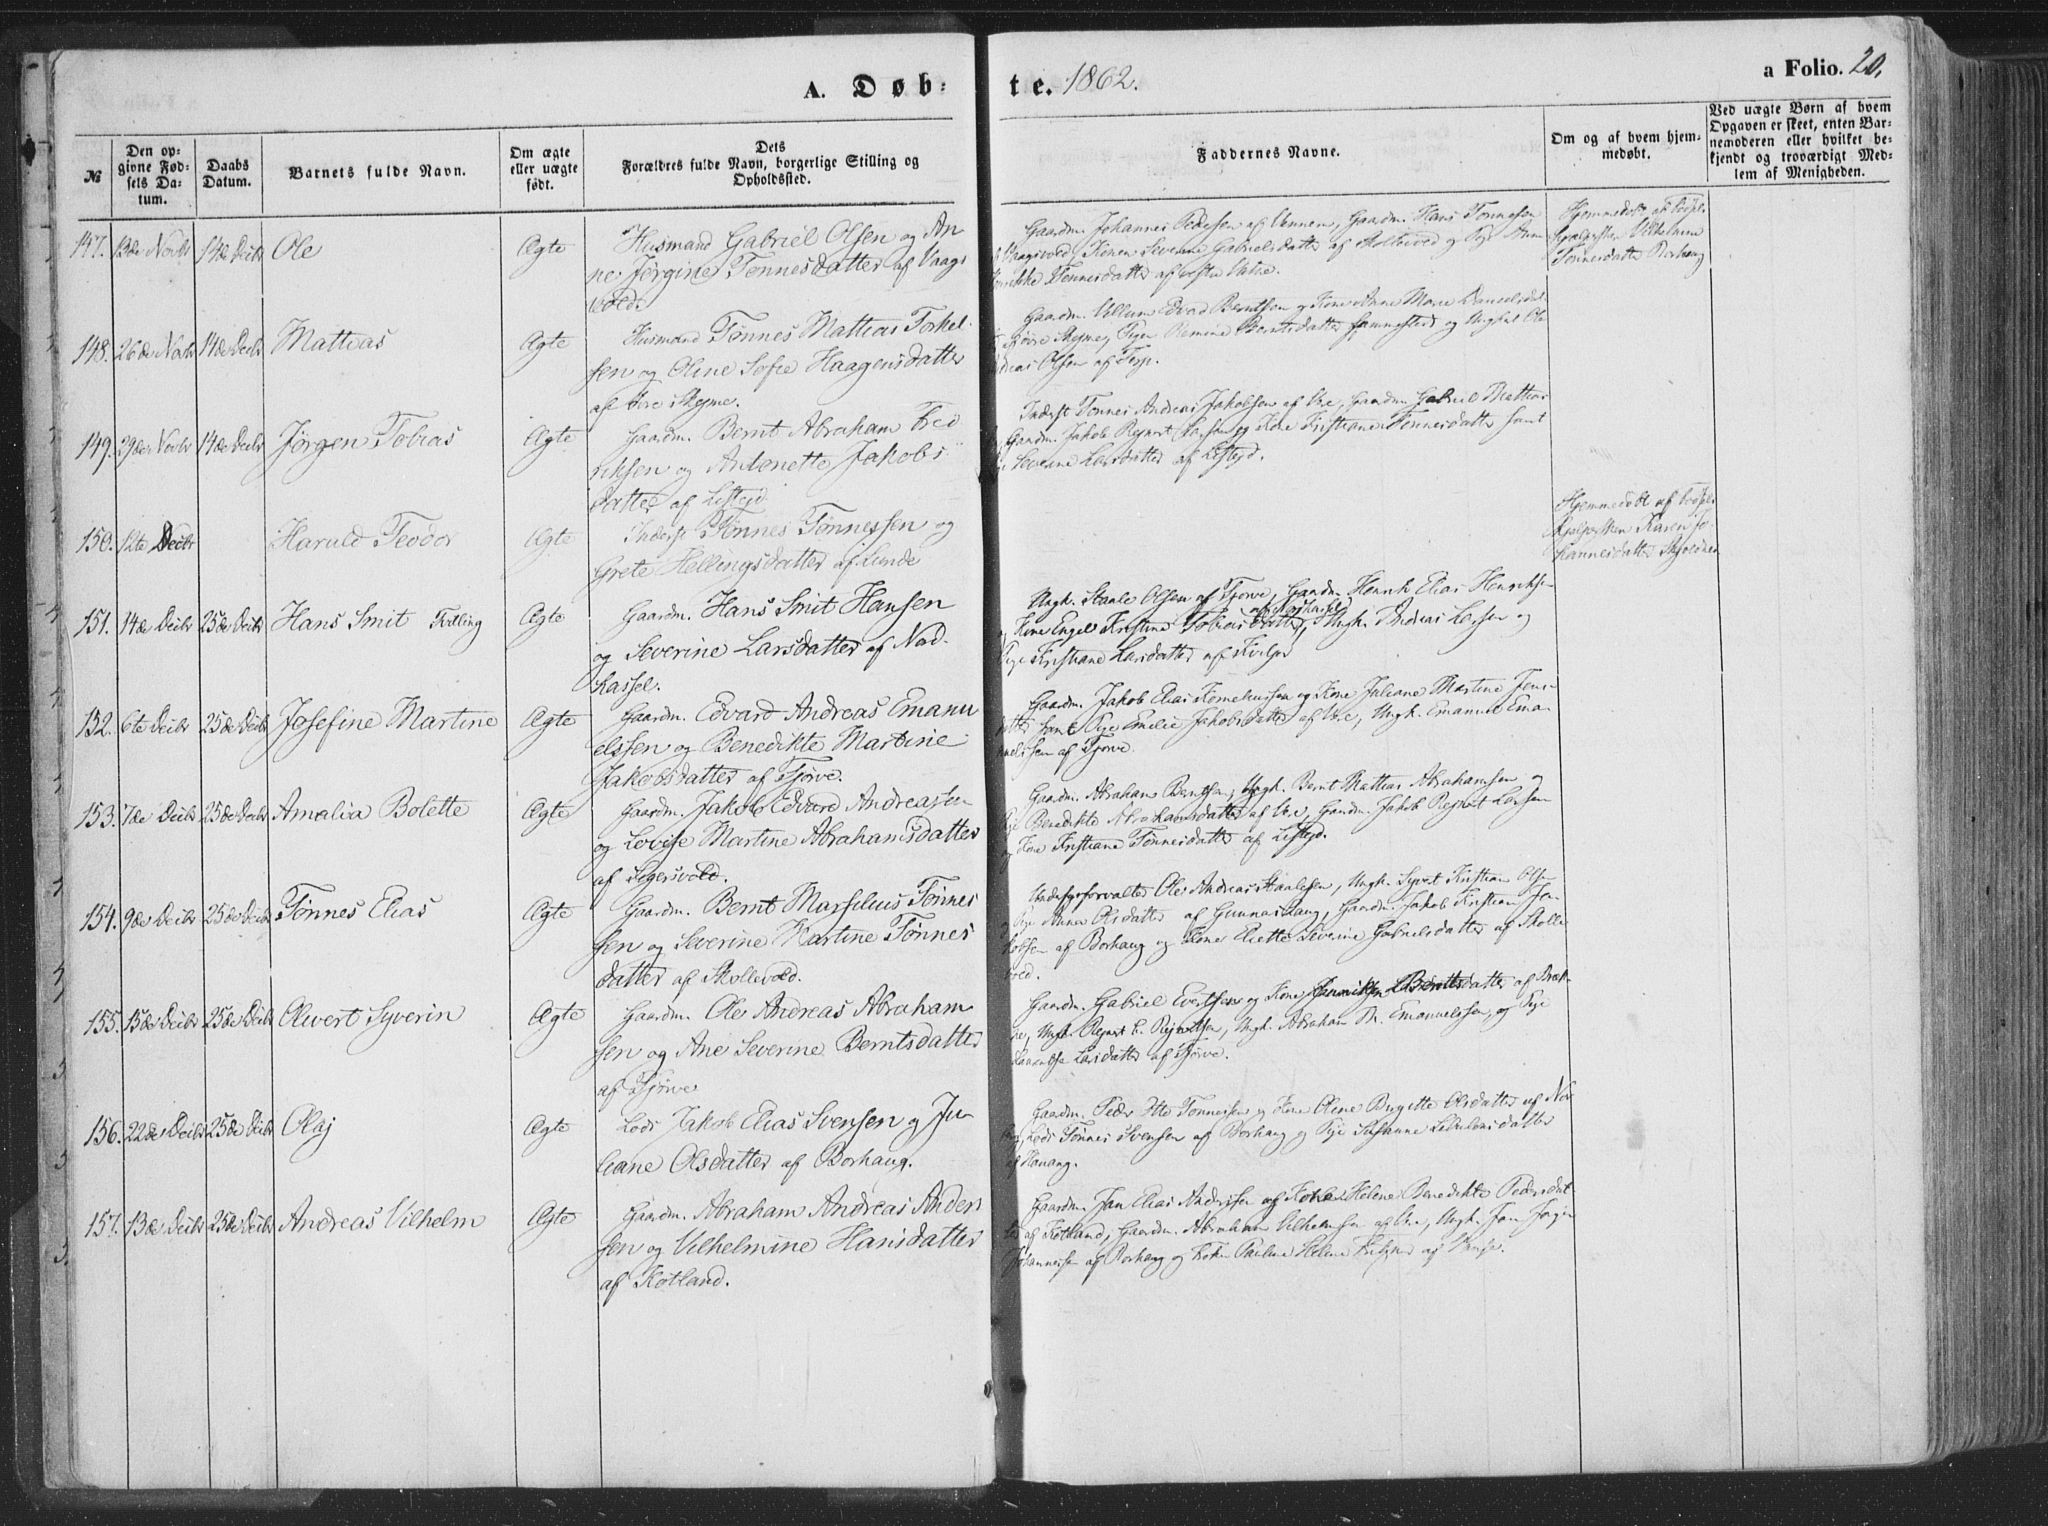 A. Døb-
te. 1862.
a Folio. 20.
№
Den op-
givne Fød-
sels Da-
tum.
Daabs
Datum.
Barnets fulde Navn.
Om ægte
eller uægte
født.
Dets
Forældres fulde Navn, borgerlige Stilling og
Opholdssted.
Faddernes Navne.
Om og af hvem hjem-
medøbt.
Ved uægte Børn af hvem
Opgaven er skeet, enten Bar-
nemoderen eller hvilket be-
kjendt og troværdigt Med-
lem af Menigheden.
147. 13de Novbr 14de Decbr Ole Ægte Husmand Gabriel Olsen og An-
ne Jørgine Tønnesdatter af Vaags
vold.
Gaardm. Johannes Pedersen af Vennem, Gaardm. Hans Tønnesen
Vaagsvold, Konen Severine Gabrielsdatter af Skollevold og Pige Anne
Tønnesdatter af vestre Vatne.
Hjemmedøbt af
Vilhelmine
Tønnesdatter Borhaug
148. 26de Novbr 14de Decbr Mattias Ægte Husmand Tønnes Mattias Torkel-
sen og Oline Sofie Haagensdatter
af Øvre Skejme.
Gaardm. Villum Edvard Berntsen og Kone Anne Marie Danielsdat-
Øvre Skejme, Pige Berntsdatter og Ungkarl Ole
Andreas Olsen af
149. 29de Novbr 14de Decbr Jørgen Tobias Ægte Gaardm. Bernt Abraham Fred
riksen og Antonette Jakobs
datter af Listejd
Inderst Tønnes Andreas Jakobsen af Vre, Gaardm. Gabriel Mattias
Gaardm. Jakob Rejnert Larsen og Kone Kristiane Tønnesdatter samt
Severine Larsdatter af Listejd.
150. 12te Decbr Harald Teodor Ægte Inderst Tønnes Tønnessen og
Grete Hellingsdatter af Lunde
Hjemmedøbt af
Karen Jo-
hannesdatter Skjoldnes
151. 14de Decbr 25de Decbr Hans Smit Tvilling Ægte Gaardm. Hans Smit Hansen
og Severine Larsdatter af Nad-
hassel.
Ungk. Staale Olsen af Tjørve, Gaardm. Henrik Elias Henriksen
og Kone Engel Kristine Tobiasdatter af Nadhassel, Ungk. Andreas Larsen og
Pige Kristiane Larsdatter af
152. 6te Decbr 25de Decbr Josefine Martine Ægte Gaardm. Edvard Andreas Emanu
elssen og Benedikte Martine
Jakobsdatter af Tjørve.
Gaardm. Jakob Elias Korneliussen og Kone Juliane Martine Jens-
datter samt Pige Emilie Jakobsdatter af Vre, Ungk. Emanuel Ema-
nuelssen af Tjørve
153. 7de Decbr 25de Decbr Amalia Bolette Ægte Gaardm. Jakob Edvard Andreassen
og Lovise Martine Abrahamsdatter
af Segersvold.
Gaardm. Abraham Berntsen, Ungk. Bernt Mattias Abrahamsen og
Pige Benedikte Abrahamsdatter af Vre, Gaardm. Jakob Rejnert Larssen
og Kone Kristiane Tønnesdatter af Listejd.
154. 9de Decbr 25de Decbr Tønnes Elias Ægte Gaardm. Bernt Marselius Tønnes
sen og Severine Martine Tønnes
datter af Skollevold.
Underfogforvalter Ole Andreas Staalesen, Ungk. Syvert Kristian Ols-
Pige Anna Olsdatter af Gunnarshaug, Gaardm. Jakob Kristian Ja-
kobsen af Borhaug og Kone Eliette Severine Gabrielsdatter af Skolle-
vold.
155. 15de Decbr 25de Decbr Olevert Syverin Ægte Gaardm. Ole Andreas Abraham
sen og Ane Severine Berntsdatter
af Tjørve
Gaardm. Gabriel Evertsen og Kone Berntsdatter af Bræk-
ne, Ungk. Rejnert B. Rejnertsen, Ungk. Abraham M. Emanuelssen, og Pige
Larsdatter af Tjørve.
156. 22de Decbr 25de Decbr Olaj Ægte Lods Jakob Elias Svensen og Ju-
liane Olsdatter af Borhaug.
Gaardm. Peder Otto Tønnessen og Kone Oline Birgitte Olsdatter af Nor
Lods Tønnes Svensen af Borhaug og Pige Susanne datter
af Hanang.
157. 13de Decbr 25de Decbr Andreas Vilhelm Ægte Gaardm. Abraham Andreas Anders
sen og Vilhelmine Hansdatter
af Kotland.
Gaardm. Jan Elias Andersen og Kone Helene Benedikte Pedersdat
ter af Kotland, Gaardm. Abraham Vilhelmsen af Vre, Ungk. Jan Jørgen
Johannessen af Borhaug og Pauline Helene af